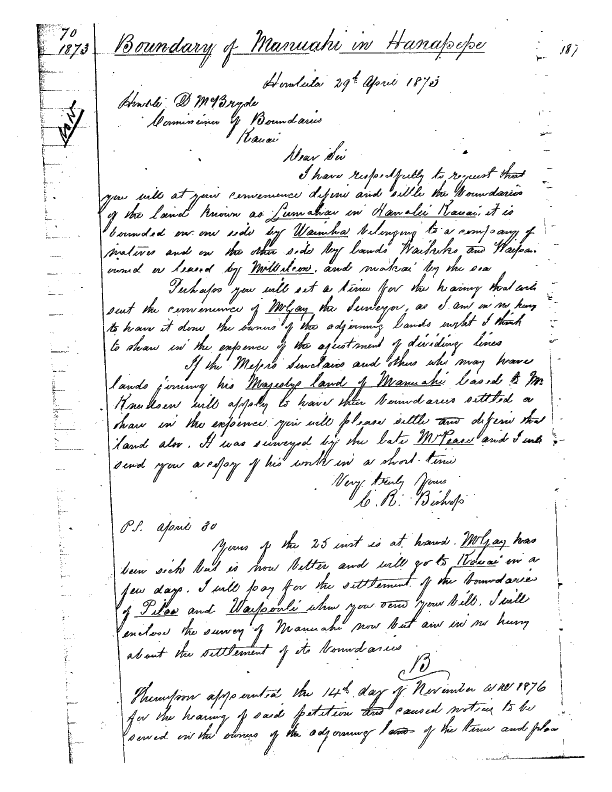 70
1873
Boundary of Manuahi in Hanapepe
187
Honolulu 29th April 1873
Honble D McBryde
Commissioner of Boundaries
Kauai
Dear Sir
I have respectfully to request that
you will at your convenience define and settle the Boundaries
of the Land known as Lumahai in Hanalei Kauai it is
bounded on one side by Wainiha belonging to a company of
natives and on the other side by lands Waikoko and Waipa
owned or leased by Mr Wilcox, and makai by the sea
Perhaps you will set a time for the hearing that will
suit the convenience of Mr Gay the Surveyor, as I am in no hurry
to have it done the owners of the adjoining lands ought I think
to share in the expense of the adjustment of dividing lines
If the Messrs Sinclairs and others who may have
lands joining his Majestys land of Manuahi leased to Mr
Knudsen will apply to have their boundaries settled &
share in the expense you will please settle and define that
land also. It was surveyed by the late Mr Pease and I will
send you a copy of his work in a short time
Very truly Yours
C. R. Bishop
P.S. April 30
Yours of the 25 inst is at hand. Mr Gay has
been sick but is now better and will go to Kauai in a
few days. I will pay for the settlement of the boundaries
of Pilaa and Waipouli when you send your bill. I will
enclose the survey of Manuahi now but am in no hurry
about the settlement of its boundaries
B
Thereupon appointed the 14th day of November A.D. 1876
for the hearing of said petition and caused notices to be
served on the owners of the adjoining lands of the time and place